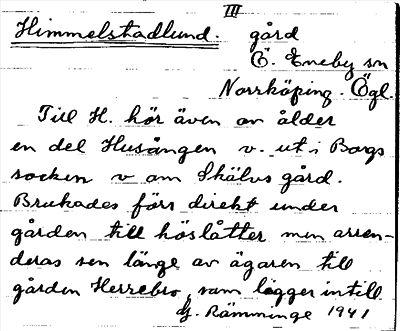 III
Himmelstadlund. gård
Ö. Eneby sn
Norrköping. Ögl.
Till H. hör även av ålder
en del Husången v. ut i Borgs
socken v om Skälvs gård.
Brukades förr direkt under
gården till höslåtter men arren-
deras sen länge av ägaren till
gården Herrebro som ligger intill
Rämminge 1941